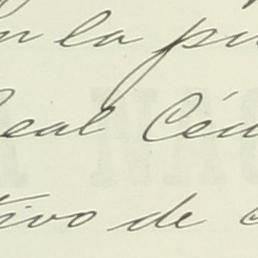 en la pu
Real Cédu
tivo de